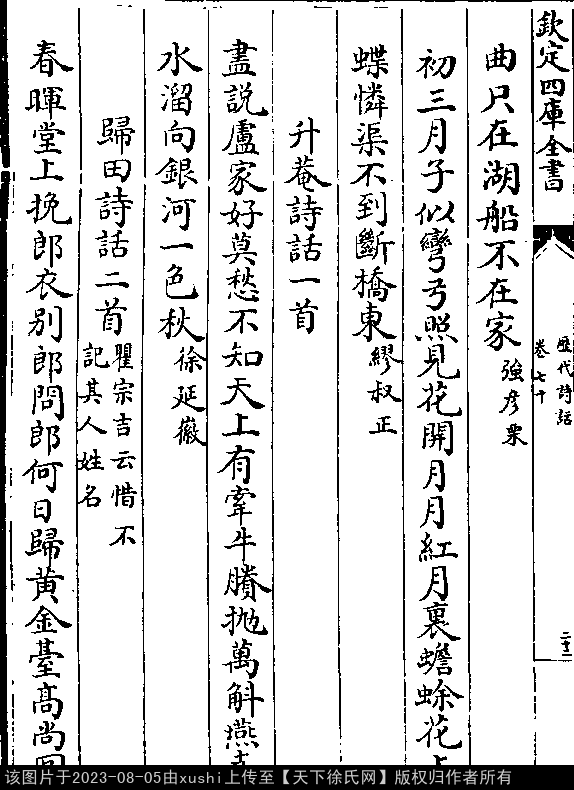 欽定四庫全書
歷代詩話
卷七十
二十二
曲只在湖船不在家強彥栗
初三月子似彎弓照見花開月月紅月裏蟾蜍花
蝶憐渠不到斷橋東繆叔正
升菴詩話一首
盡說盧家好莫愁不知天上有牽牛賸拋萬斛燕
水溜向銀河一色秋徐延徽
歸田詩話二首瞿宗吉云惜不
記其人姓名
春暉堂上挽郎衣別郎問郎何日歸黄金臺髙尚
该图片于2023-08-05由xushi上传至【天下徐氏网】版权归作者所有